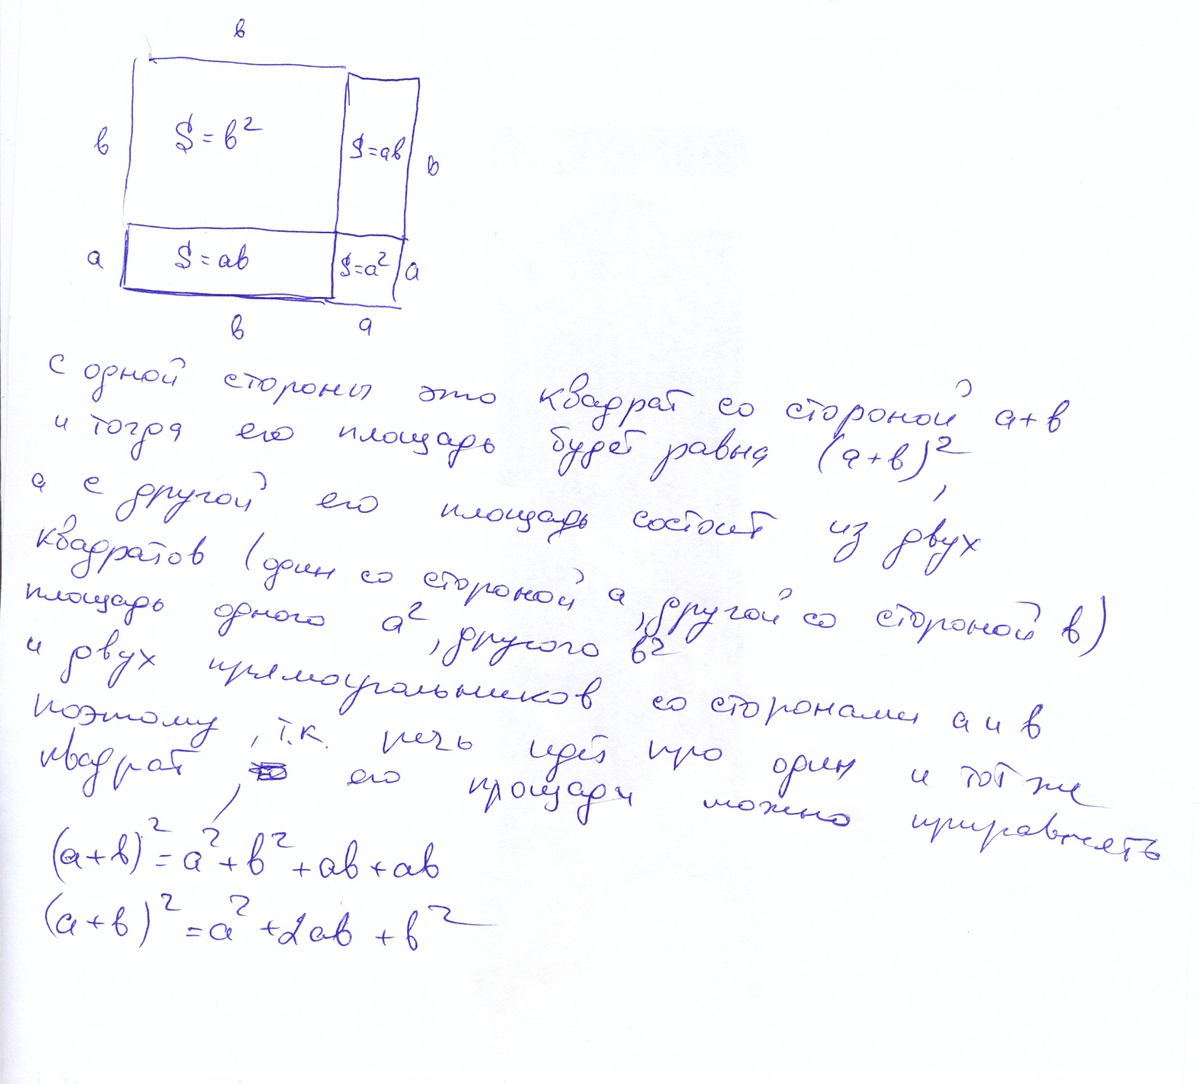 в
в S=в² S=ав в
а S=ав S=а² а
в а
с одной стороны это квадрат со стороной а+в
и тогда его площадь будет равна (а+в)²,
а с другой его площадь состоит из двух
квадратов (один со стороной а, другой со стороной в)
площадь одного а², другого в²
и двух прямоугольников со сторонами а и в
поэтому, т.к. речь идёт про один и тот же
квадрат, его площади можно приравнять
(а+в)²=а²+в²+ав+ав
(а+в)²=а²+2ав+в²